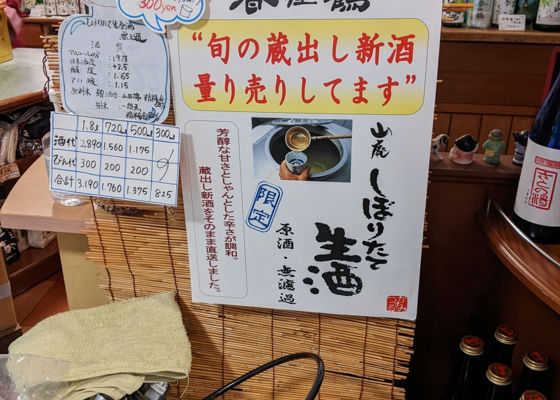 300yen
しぼりたて生原酒
無ろ過
酒質
アルコール分 :19度
日本酒度 :+2.5
酸度 :1.65
アミノ酸 :1.15
1.8ℓ 720㎖ 500㎖ 300㎖
酒代 2,890 1,560 1,175
びん代 300 200 200
合計 3,190 1,760 1,375 825
春鹿鶴
“旬の蔵出し新酒
量り売りしてます”
山廃
しぼりたて
生酒
原酒・無濾過
限定
芳醇な甘さとしゃんとした辛さが調和。
蔵出し新酒をそのまま直送しました。